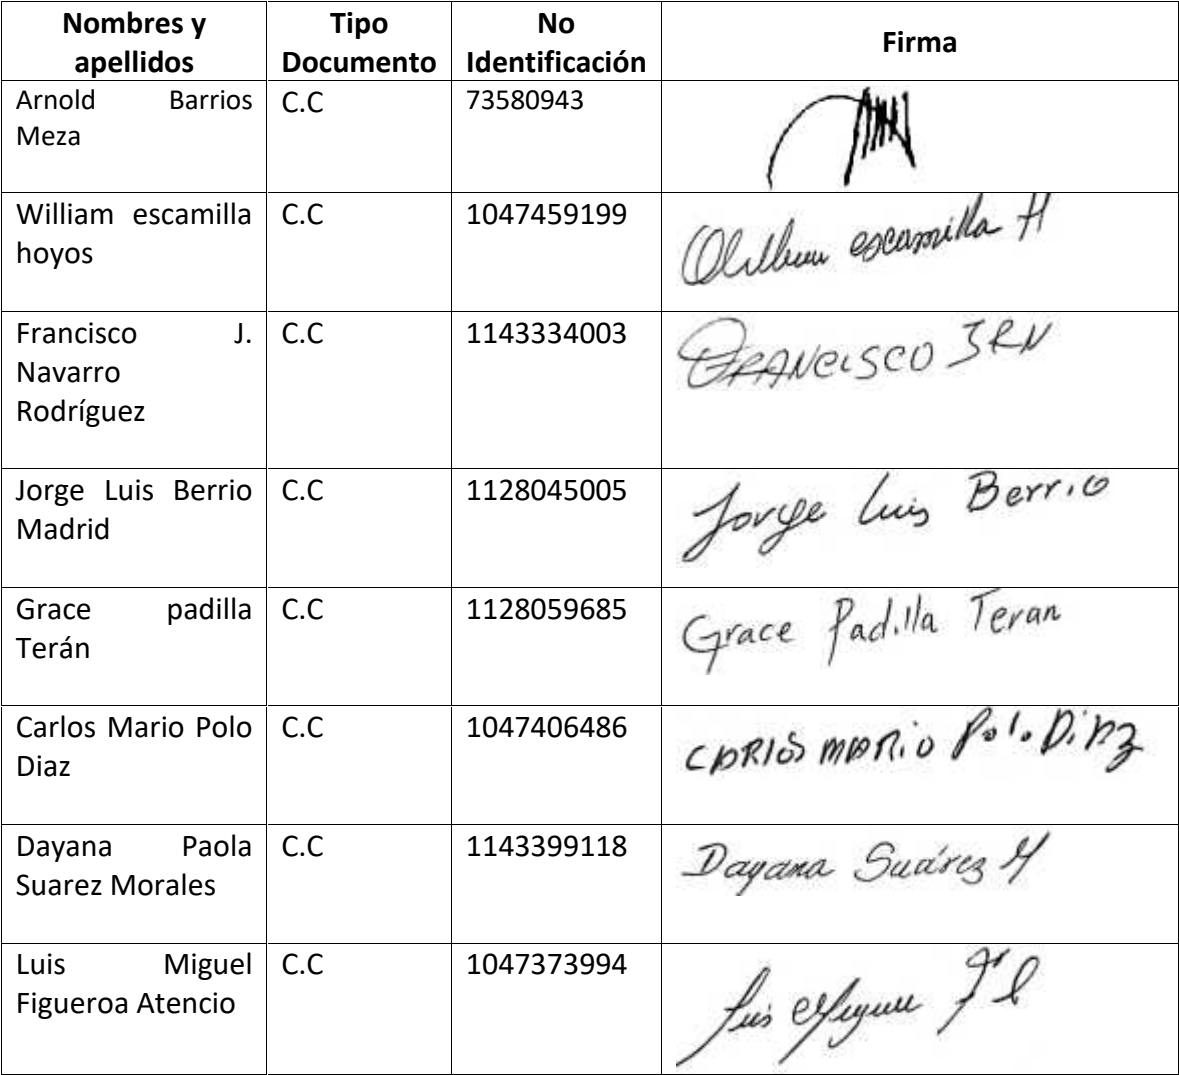 Nombres y
apellidos
Tipo
Documento
No
Identificación
Firma
Arnold Barrios
Meza
C.C
73580943
William escamilla
hoyos
C.C
1047459199
William escamilla H
Francisco J.
Navarro
Rodríguez
C.C
1143334003
FRANCISCO JRN
Jorge Luis Berrio
Madrid
C.C
1128045005
Jorge Luis Berrio
Grace padilla
Terán
C.C
1128059685
Grace Padilla Teran
Carlos Mario Polo
Diaz
C.C
1047406486
CARlOS MARiO Polo DiAz
Dayana Paola
Suarez Morales
C.C
1143399118
Dayana Suárez M
Luis Miguel
Figueroa Atencio
C.C
1047373994
Luis Miguel